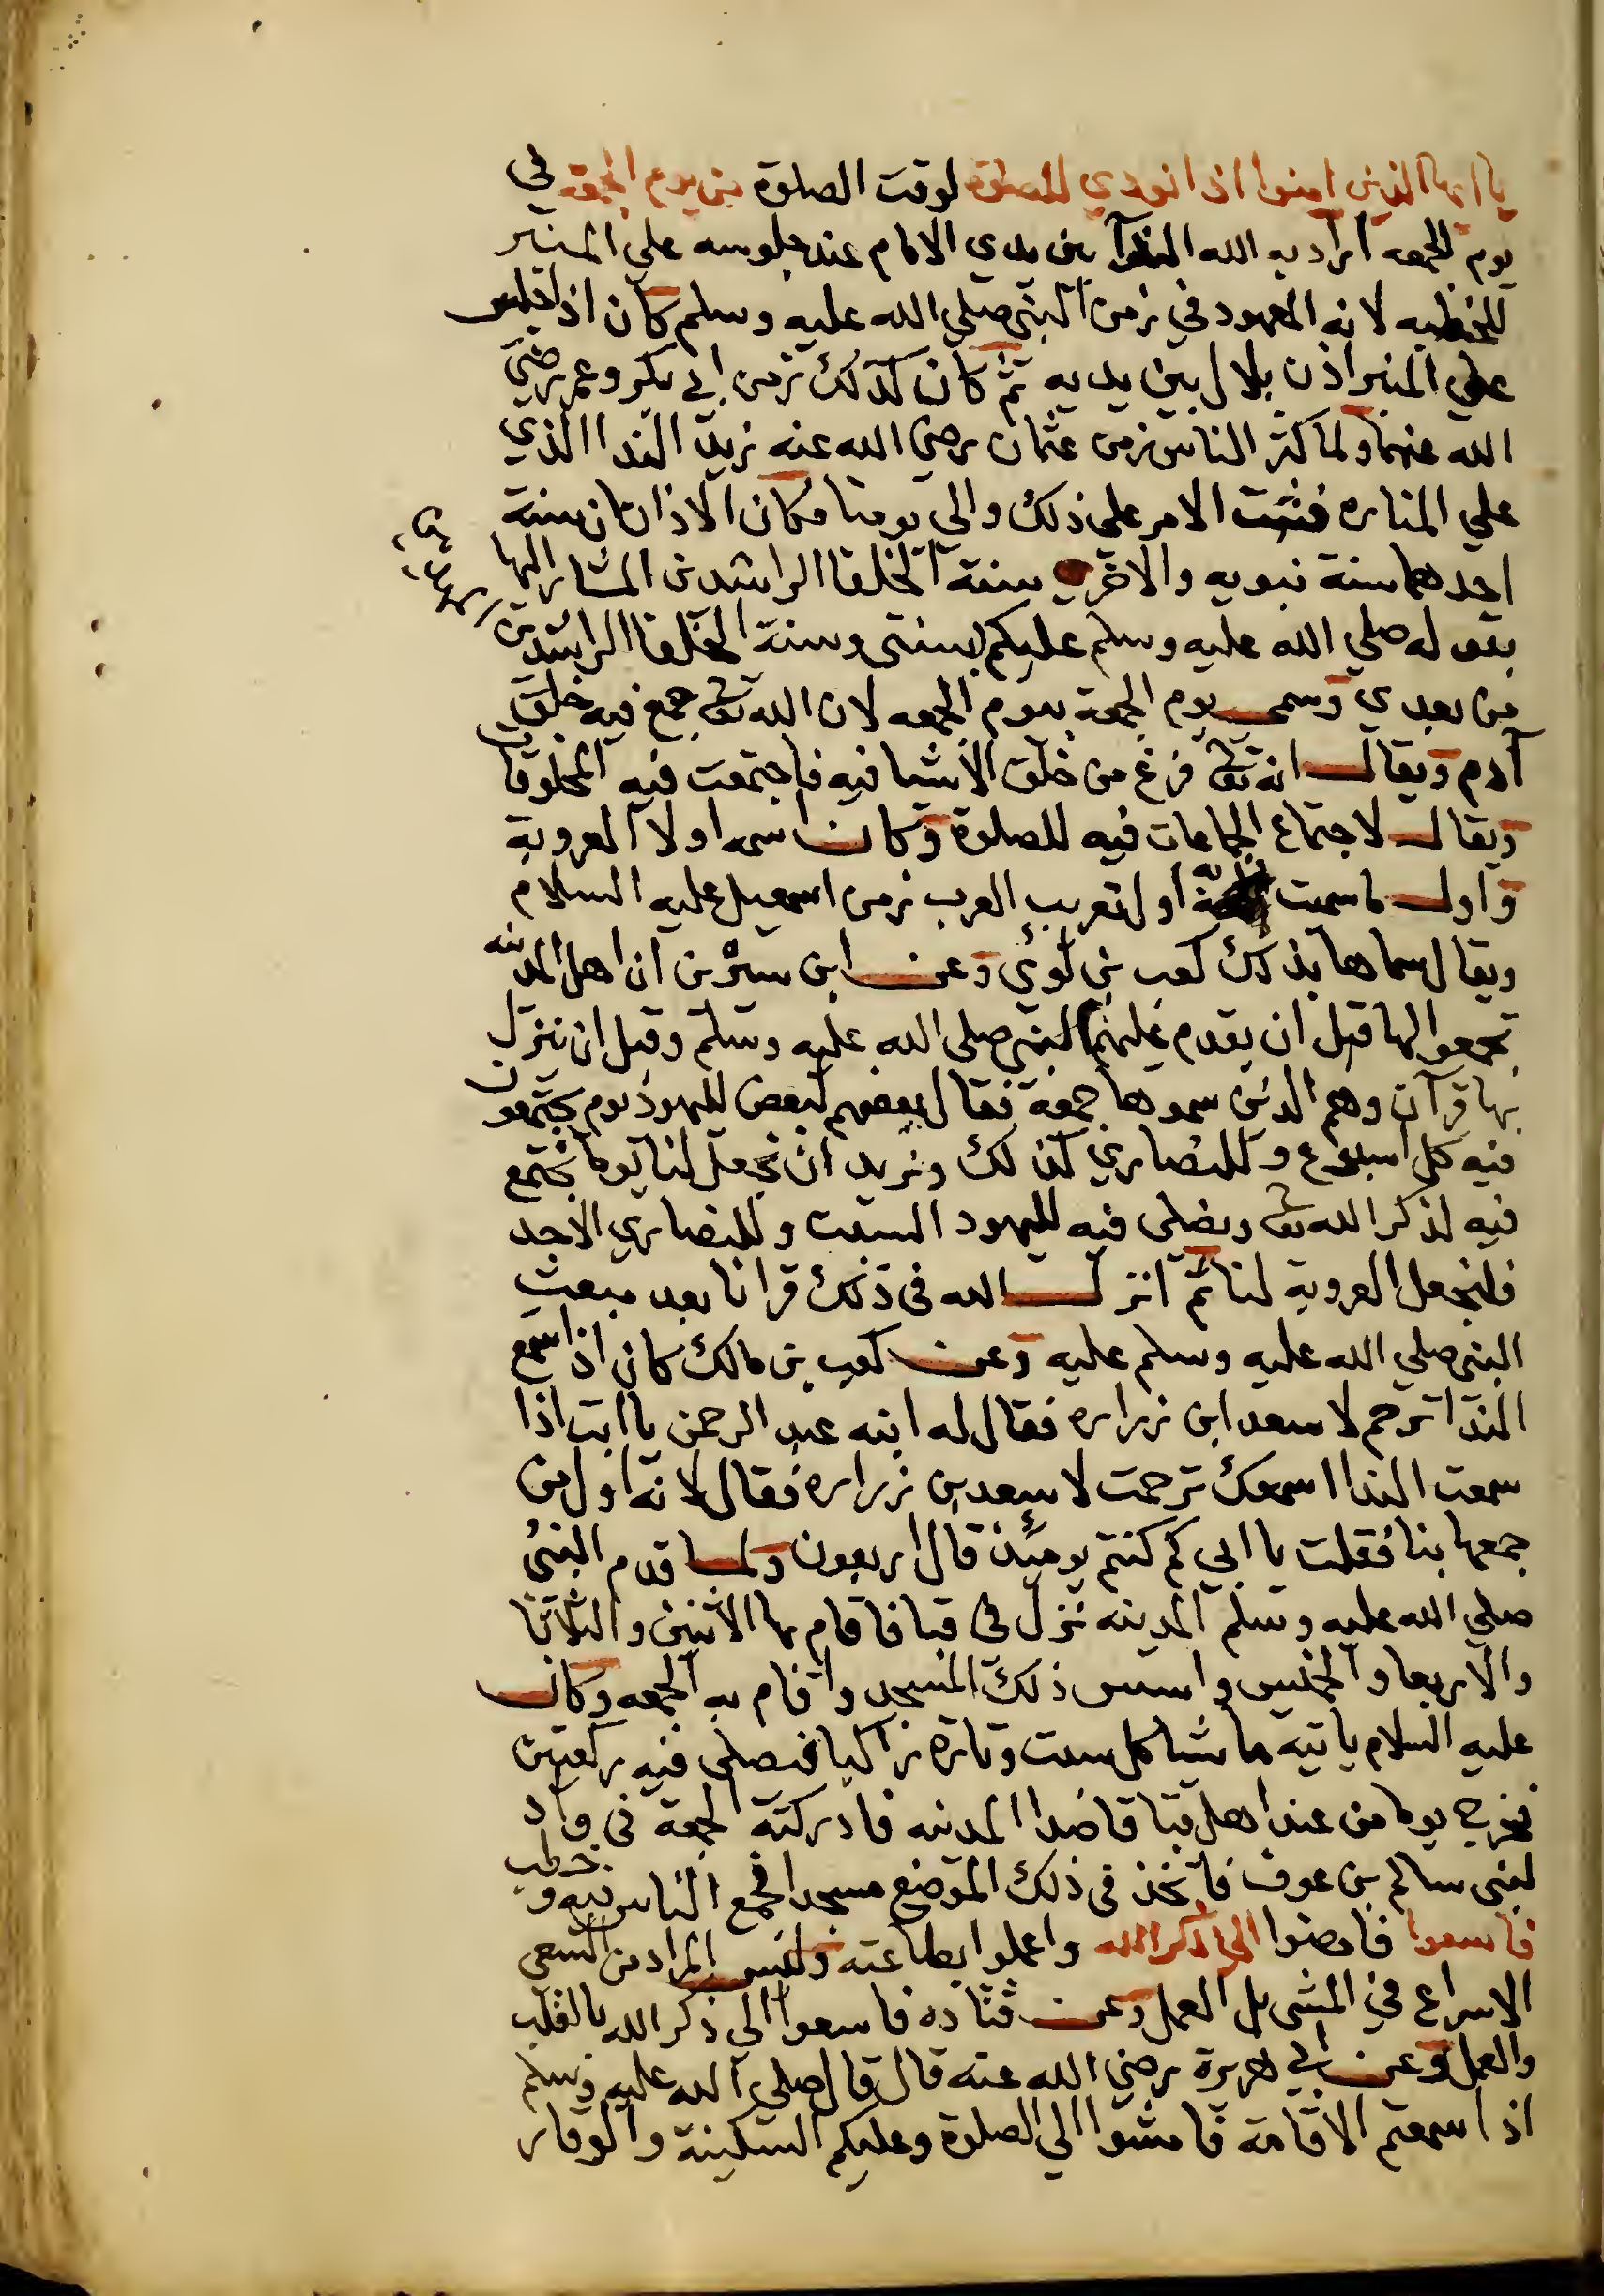 يا ايها الذين امنوا اذا نودي للصلوة لوقت الصلوة من يوم الجمعه في
يوم الجمعه اراد به الله الندآ بين يدي الامام عند جلوسه علي المنبر
للخطبه لانه المعهود في زمن النبي صلي الله عليه وسلم كان اذا جلس
علي المنبر اذن بلال بين يديه ثم كان كذلك زمن ابي بكر وعمر رضي
الله عنهما ولما كثر الناس زمن عثمان رضي الله عنه زيد الندا الذي
علي المناره فثبت الامر علي ذلك والي يومنا فكان الاذانان سنة
احدهما سنة نبويه والاخري سنة الخلفا الراشدين المشار اليها
بقوله صلي الله عليه وسلم عليكم بسنتي وسنة الخلفا الراشدين
من بعدي وسمي يوم الجمعة بيوم الجمعه لان الله تعٰ جمع فيه خلق
آدم ويقال انه تعٰ فرغ من خلق الاشيا فيه فاجتمعت فيه المخلوقات
ويقال لاجتماع الجماعات فيه للصلوة وكان اسمه اولا العروبة
واول ما سميت اول تعريب العرب زمن اسمعيل عليه السلام
ويقال سماها بذلك كعب بن لوئي وعن ابن سيرين ان اهل المدينه
تجمعوا لها قبل ان يقدم عليهم النبي صلي الله عليه وسلم وقبل ان ينزل
بها قرآن وهم الذين سموها جمعة فقال بعضهم لبعض لليهود يوم يجتمعون
فيه كل اسبوع وللنصاري كذلك ونريد ان نجعل لنا يوما نجتمع
فيه لذكر الله تعٰ ونصلي فيه لليهود السبت وللنصاري الاحد
فلنجعل العروبة لنا ثم انزل الله في ذلك قرانا بعد مبعث
النبي صلي الله عليه وسلم عليه وعن كعب بن مالك كان اذا سمع
الندا ترحم لاسعد ابن زراره فقال له ابنه عبد الرحمن يا ابت اذا
سمعت الندا اسمعك ترحمت لاسعد بن زراره فقال لانه اول من
جمعها بنا فقلت يا ابي كم كنتم يومئذ قال اربعون ولما قدم النبي
صلي الله عليه وسلم المدينه نزل في قبا فاقام بها الاثنين والثلاثا
والاربعا والخميس واسس ذلك المسجد واقام به الجمعه وكان
عليه السلام ياتيه ماشيا كل سبت وتارة راكبا فيصلي فيه ركعتين
فخرج يوما من عند اهل قبا قاصدا المدينه فادركته الجمعة في واد
لبني سالم بن عوف فاتخذ في ذلك الموضع مسجدا فجمع الناس فيه وخطب
فاسعوا فامضوا الي ذكر الله واعملوا بطاعته وليس المراد من السعي
الاسراع في المشي بل العمل وعن قتاده فاسعوا الي ذكر الله بالقلب
والعمل وعن ابي هريرة رضي الله عنه قال قال صلي الله عليه وسلم
اذا سمعتم الاقامة فامشوا الي الصلوة وعليكم السكينة والوقار